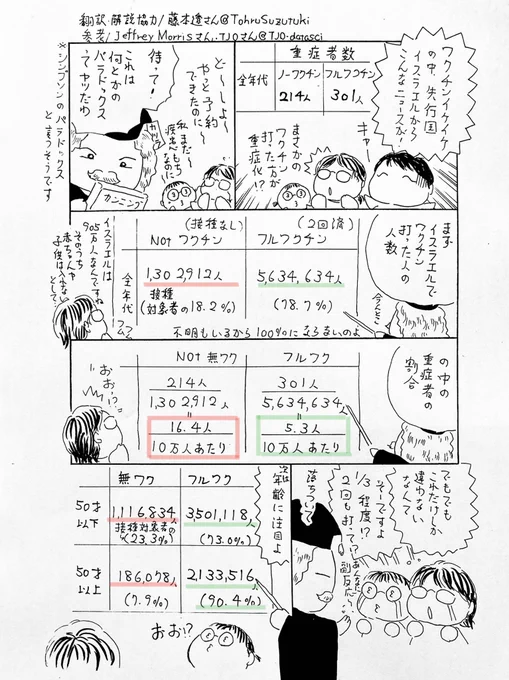 翻訳・解説協力/藤本遼さん@TohruSuzutuki
参考/Jeffrey Morrisさん、TJOさん@TJO-datasci
ワクチンイケイケ
の中、先行国
イスラエルから
こんなニュースが!
重症者数
全年代
ノーワクチン
フルワクチン
214人
301人
キァー
まさかの
ワクチン
打った方が
重症化!?
ど〜しよ〜
やっと予約
できたのに
私、まだ〜
疾患もちなのに〜
待って!
これは
何とかの
パラドックス
ってヤツだわ
カンニング
※シンプソンのパラドックス
と言うそうです
まず
イスラエルで
ワクチン
打った人の
人数
今んとこ
(接種なし)
(2回済)
Notワクチン
フルワクチン
全年代
1,302,912人
5,634,634人
接種
(対象者の18.2%)
(78.7%)
不明もいるから100%にならないのよ
イスラエルは
905万人なんですね
そのうち
赤ちゃんや
子供は入れない
として、
フムフム
の中の
重症者の
割合
Not 無ワク
フルワク
214人
301人
1,302,912人
5,634,634人
=
=
16.4人
5.3人
10万人あたり
10万人あたり
おお!?
でもでも
これだけしか
違わない
なんて
そーですよ
1/3程度!?
2回も打って!?
あんなに
副反応…
落ちついて
次は
年齢に注目よ
無ワク
フルワク
50才
以下
1,116,834人
3,501,118人
接種対象者の
(23.3%)
(73.0%)
50才
以上
186,078人
2,133,516人
(7.9%)
(90.4%)
おお!?